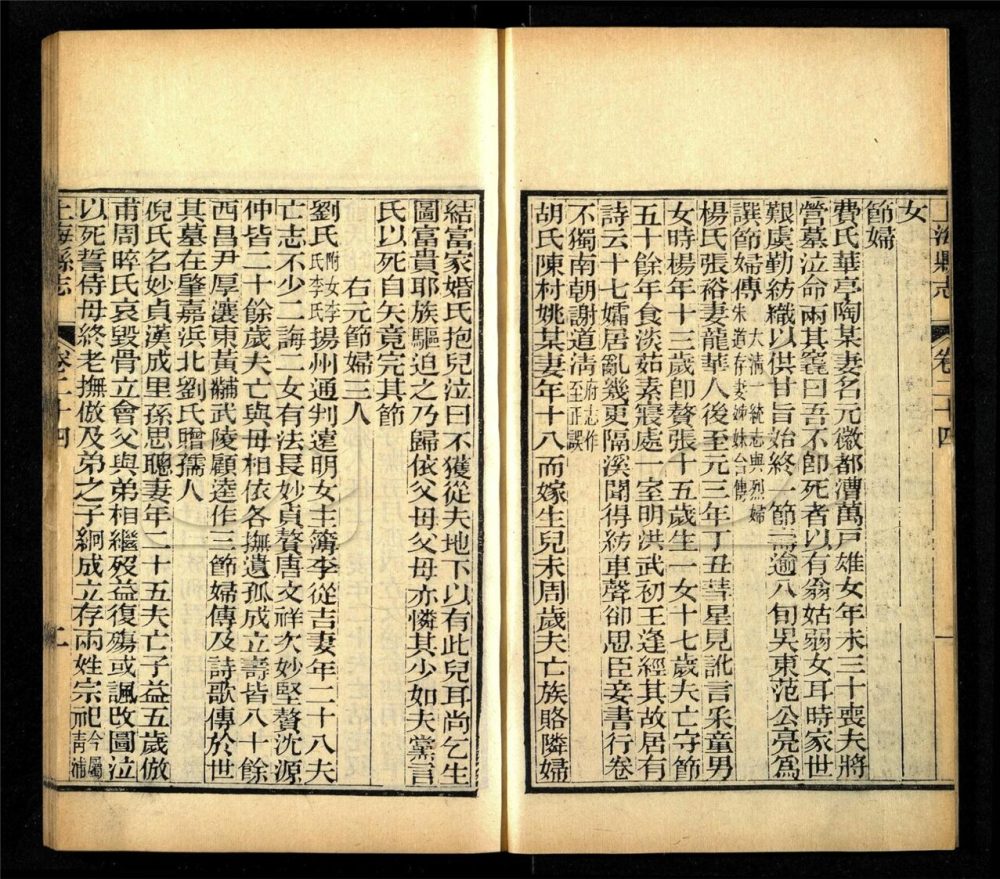 上海縣志
卷二十四
一
女
節婦
費氏華亭陶某妻名元徽都漕萬戶雄女年未三十喪夫將
營墓泣命兩其窆曰吾不卽死者以有翁姑弱女耳時家世
艱虞勤紡織以供甘旨始終一節壽逾八旬吳東范公亮爲
譔節婦傳大淸一統志與烈婦朱道存妻妯妹合傳
楊氏張裕妻龍華人後至元三年丁丑彗星見訛言采童男
女時楊年十三歲卽贅張十五歲生一女十七歲夫亡守節
五十餘年食淡茹素寢處一室明洪武初王逢經其故居有
詩云十七孀居亂幾更隔溪聞得紡車聲卻思臣妾書行卷
不獨南朝謝道淸府志作至正誤
胡氏陳村姚某妻年十八而嫁生兒未周歲夫亡族賂隣婦
結富家婚氏抱兒泣曰不獲從夫地下以有此兒耳尚乞生
圖富貴耶族驅迫之乃歸依父母父母亦憐其少如夫黨言
氏以死自矢竟完其節
右元節婦三人
劉氏附女李氏李氏揚州通判遠明女主簿李從吉妻年二十八夫
亡志不少二誨二女有法長妙貞贅唐文祥次妙堅贅沈源
仲皆二十餘歲夫亡與母相依各撫遺孤成立壽皆八十餘
西昌尹厚瀼東黃黼武陵顧逵作三節婦傳及詩歌傳於世
其墓在肇嘉浜北劉氏贈孺人
倪氏名妙貞漢成里孫思聰妻年二十五夫亡子益五歲倣
甫周晬氏哀毀骨立會父與弟相繼歿益復殤或諷改圖泣
以死誓侍母終老撫倣及弟之子絅成立存兩姓宗祀今屬靑浦
上海縣志
卷二十四
二